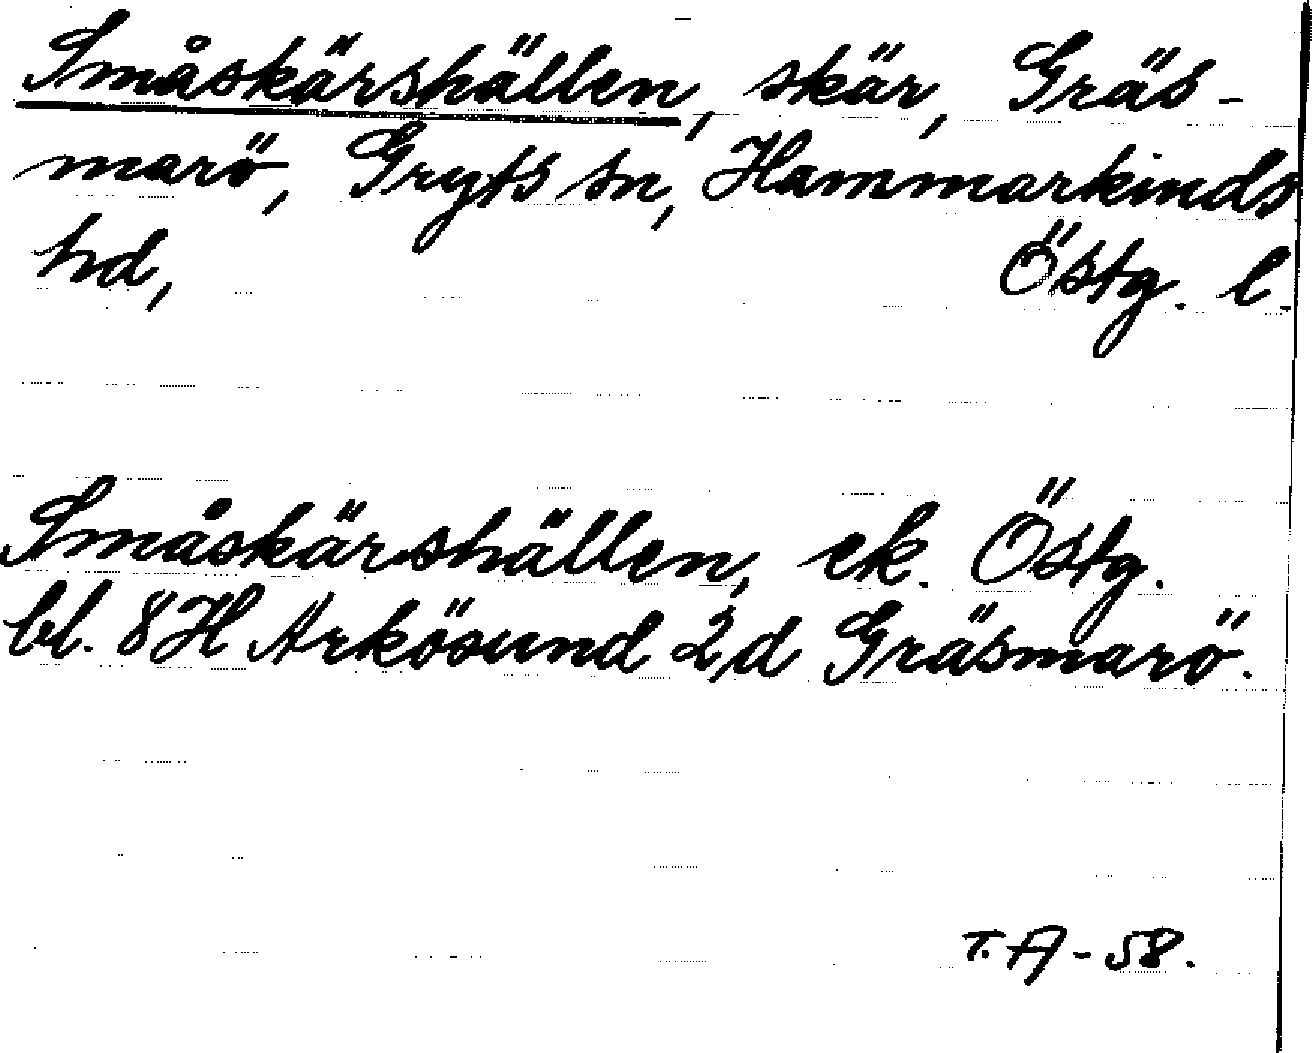 Småskärshällen, skär, Gräs-
marö, Gryts sn, Hammarkinds
hd, Östg. l.
Småskärshällen, ek. Östg.
bl. 8H Arkösund 2,d Gräsmarö.
T.A-58.